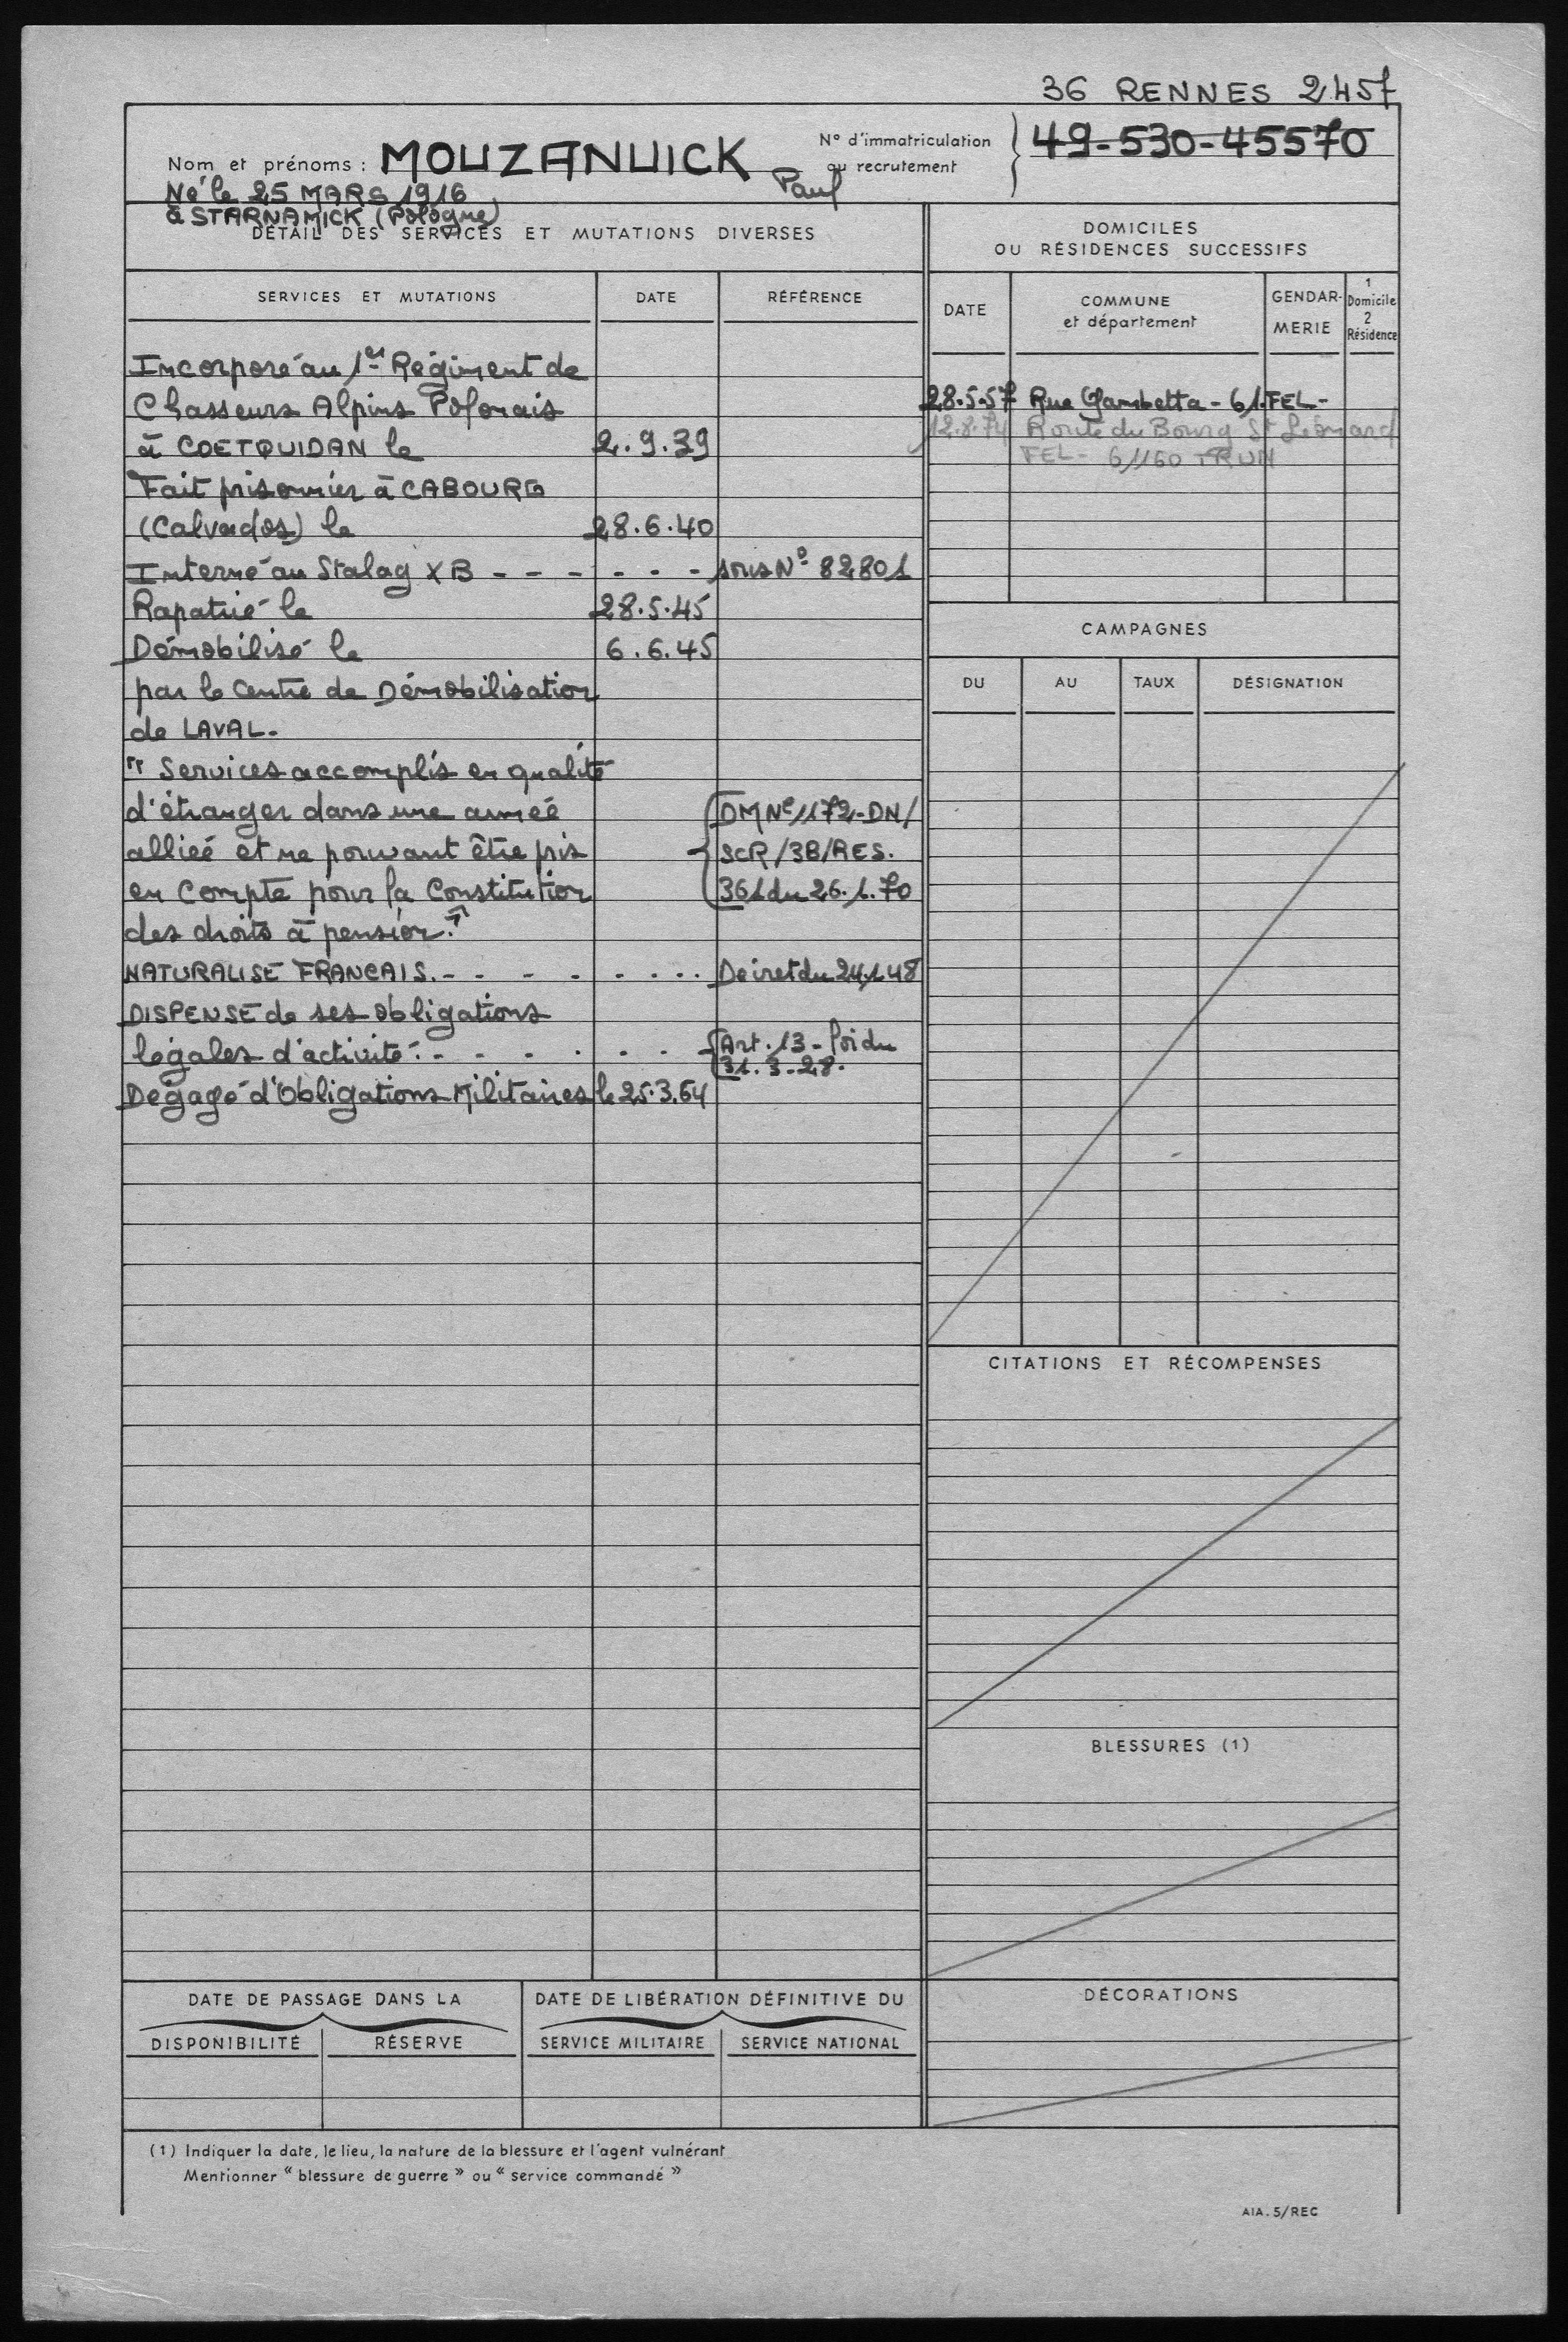 36 RENNES 2457
Nom et prénoms : MOUZANUICK Paul
N° d'immatriculation
au recrutement
49-530-45570
Né le 25 MARS 1916
à STARNAMICK (Pologne)
DÉTAIL DES SERVICES ET MUTATIONS DIVERSES
SERVICES ET MUTATIONS DATE RÉFÉRENCE
Incorporé au 1er Régiment de
Chasseurs Alpins Polonais
à COETQUIDAN le 2.9.39
Fait prisonnier à CABOURG
(Calvados) le 28.6.40
Interné au Stalag XB - - - - - - sous N° 82801
Rapatrié le 28.5.45
Démobilisé le 6.6.45
par le Centre de Démobilisation
de LAVAL.
" Services accomplis en qualité
d'étranger dans une armeé
allieé et ne pouvant être pris
en Compte pour la Constitution
des droits à pension."
DM N° 1172-DN/
SCR/3B/RES.
361 du 26.1.70
NATURALISÉ FRANCAIS. - - - - - - - Décret du 24.1.48
DISPENSÉ de ses obligations
légales d'activité : - - - - - - Art. 13 - loi du
31.3.28.
Dégagé d'Obligations Militaires le 25.3.64
DOMICILES
OU RÉSIDENCES SUCCESSIFS
DATE
COMMUNE
et département
GENDAR-
MERIE
1
Domicile
2
Résidence
28.5.57 Rue Gambetta - 61. FEL -
12.8.74 Route du Bourg St Léonard
FEL - 61160 TRUN
CAMPAGNES
DU AU TAUX DÉSIGNATION
CITATIONS ET RÉCOMPENSES
BLESSURES (1)
DÉCORATIONS
DATE DE PASSAGE DANS LA
DISPONIBILITÉ RÉSERVE
DATE DE LIBÉRATION DÉFINITIVE DU
SERVICE MILITAIRE SERVICE NATIONAL
(1) Indiquer la date, le lieu, la nature de la blessure et l'agent vulnérant
Mentionner " blessure de guerre " ou " service commandé "
AIA. 5/REC